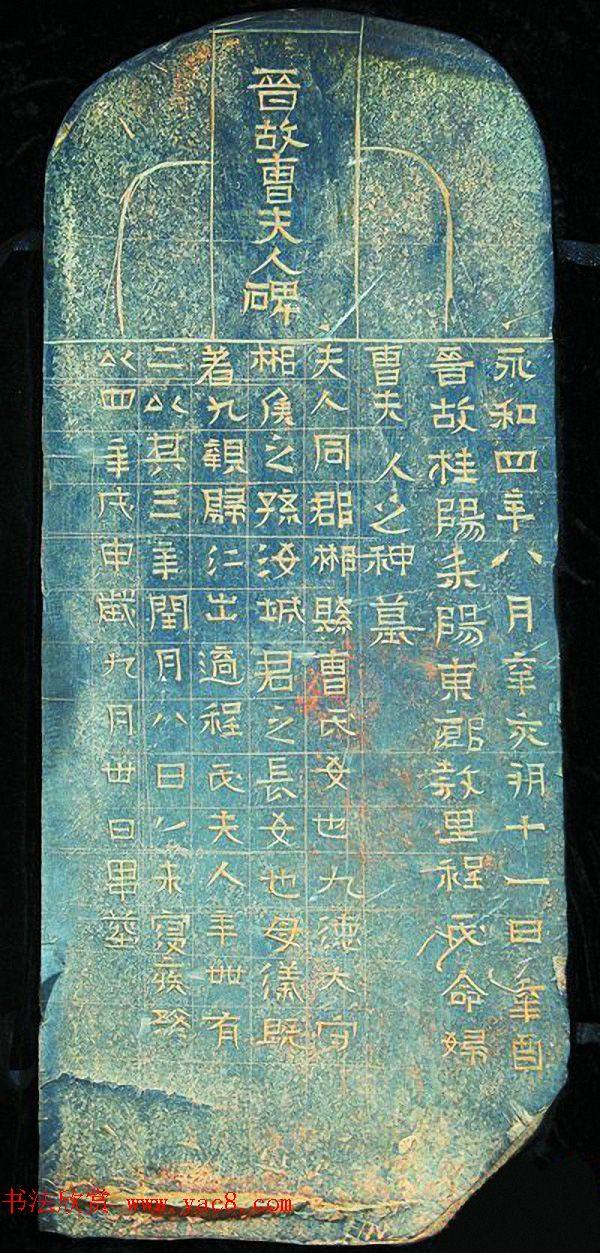 晉故曹夫人碑
永和四年八月辛亥朔十一日辛酉
晉故桂陽耒陽東鄉里程氏命婦
曹夫人之神墓
夫人同郡郴縣曹氏女也九德大守
郴侯之孫汝城君之長女也母儀既
著九親歸仁出適程氏夫人年卅有
二以其三年閏月八日以來寢疾
以四年戊申歲九月廿日畢葬
书法欣赏 www.yac8.com